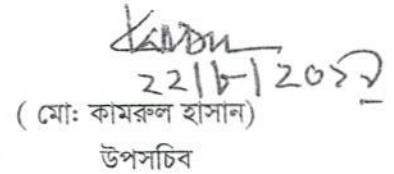 ২২|৮|২০১৭
( মো: কামরুল হাসান)
উপসচিব